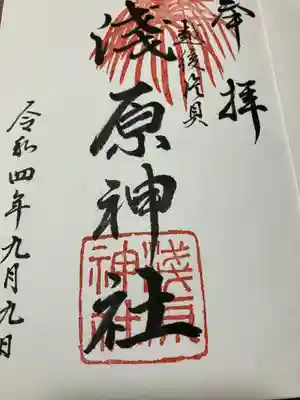 奉拝
越後片貝
淺原神社
淺原神社
令和四年九月九日